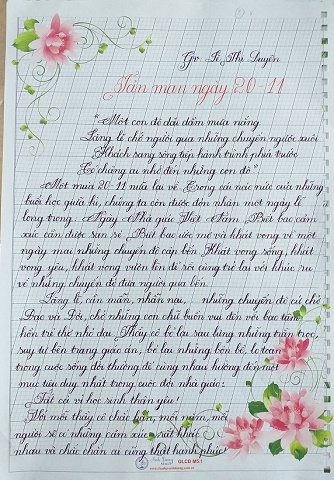 Gv: Lê Thị Duyên
Tản mạn ngày 20-11
"Một con đò dãi dầm mưa nắng
Lặng lẽ chở người qua những chuyến người xuôi
Khách sang sông tiếp hành trình phía trước
Có chăng ai nhớ đến những con đò"
Một mùa 20-11 nữa lại về. Trong cái náo nức của những
buổi học giữa kì, chúng ta còn được đón nhận một ngày lễ
long trọng: Ngày Nhà giáo Việt Nam. Biết bao cảm
xúc cần được san sẻ. Biết bao ước mơ và khát vọng về một
ngày mai những chuyến đò cập bến. Khát vọng sống, khát
vọng yêu, khát vọng vươn lên để rồi cùng trở lại với khúc ru
về những chuyến đò đưa người qua bến.
Lặng lẽ, cần mẫn, nhẫn nại, ... những chuyến đò cứ chở
Đạo và Đời, chở những con chữ buồn vui đến với bao tâm
hồn trẻ thơ nhỏ dại. Thầy cô bỏ lại sau lưng những trăn trở,
suy tư bên trang giáo án, bỏ lại những bộn bề, lo toan
trong cuộc sống đời thường để cùng nhau hướng đến một
mục tiêu duy nhất trong cuộc đời nhà giáo:
Tất cả vì học sinh thân yêu!
Mỗi mỗi thầy cô chắc hẳn, mỗi năm, mỗi
người sẽ có những cảm xúc rất khác
nhau và chắc chắn ai cũng thật hạnh phúc!
GLCB MS.1